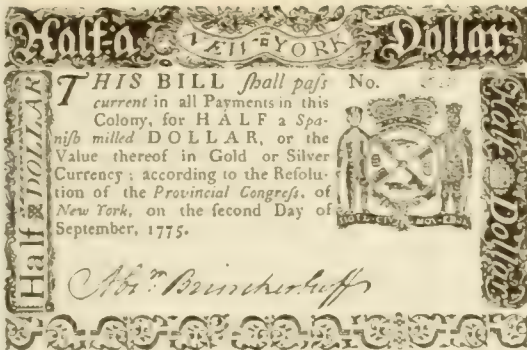 Half-a NEW-YORK Dollar
THIS BILL ſhall paſs No.
current in all Payments in this
Colony, for HALF a Spa-
niſh milled DOLLAR, or the
Value thereof in Gold or Silver
Currency; according to the Reſolu-
tion of the Provincial Congreſs, of
New York, on the ſecond Day of
September, 1775.
Abm Brinckerhoff
Half a DOLLAR
Half a Dollar